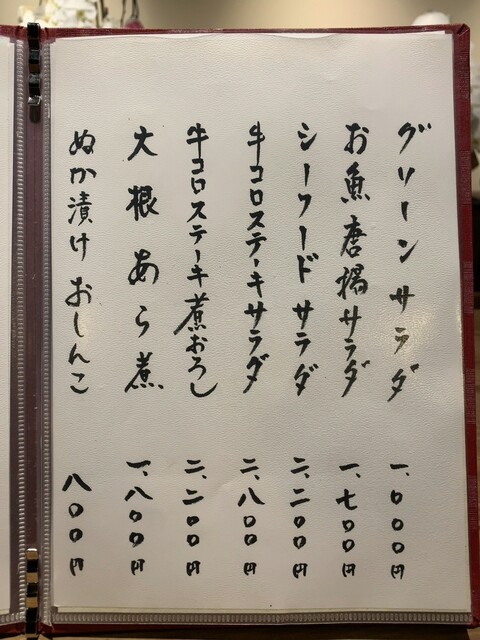 グリーンサラダ 一、〇〇〇円
お魚唐揚サラダ 一、七〇〇円
シーフードサラダ 二、二〇〇円
牛コロステーキサラダ 二、八〇〇円
牛コロステーキ煮おろし 二、二〇〇円
大根あら煮 一、八〇〇円
ぬか漬けおしんこ 八〇〇円